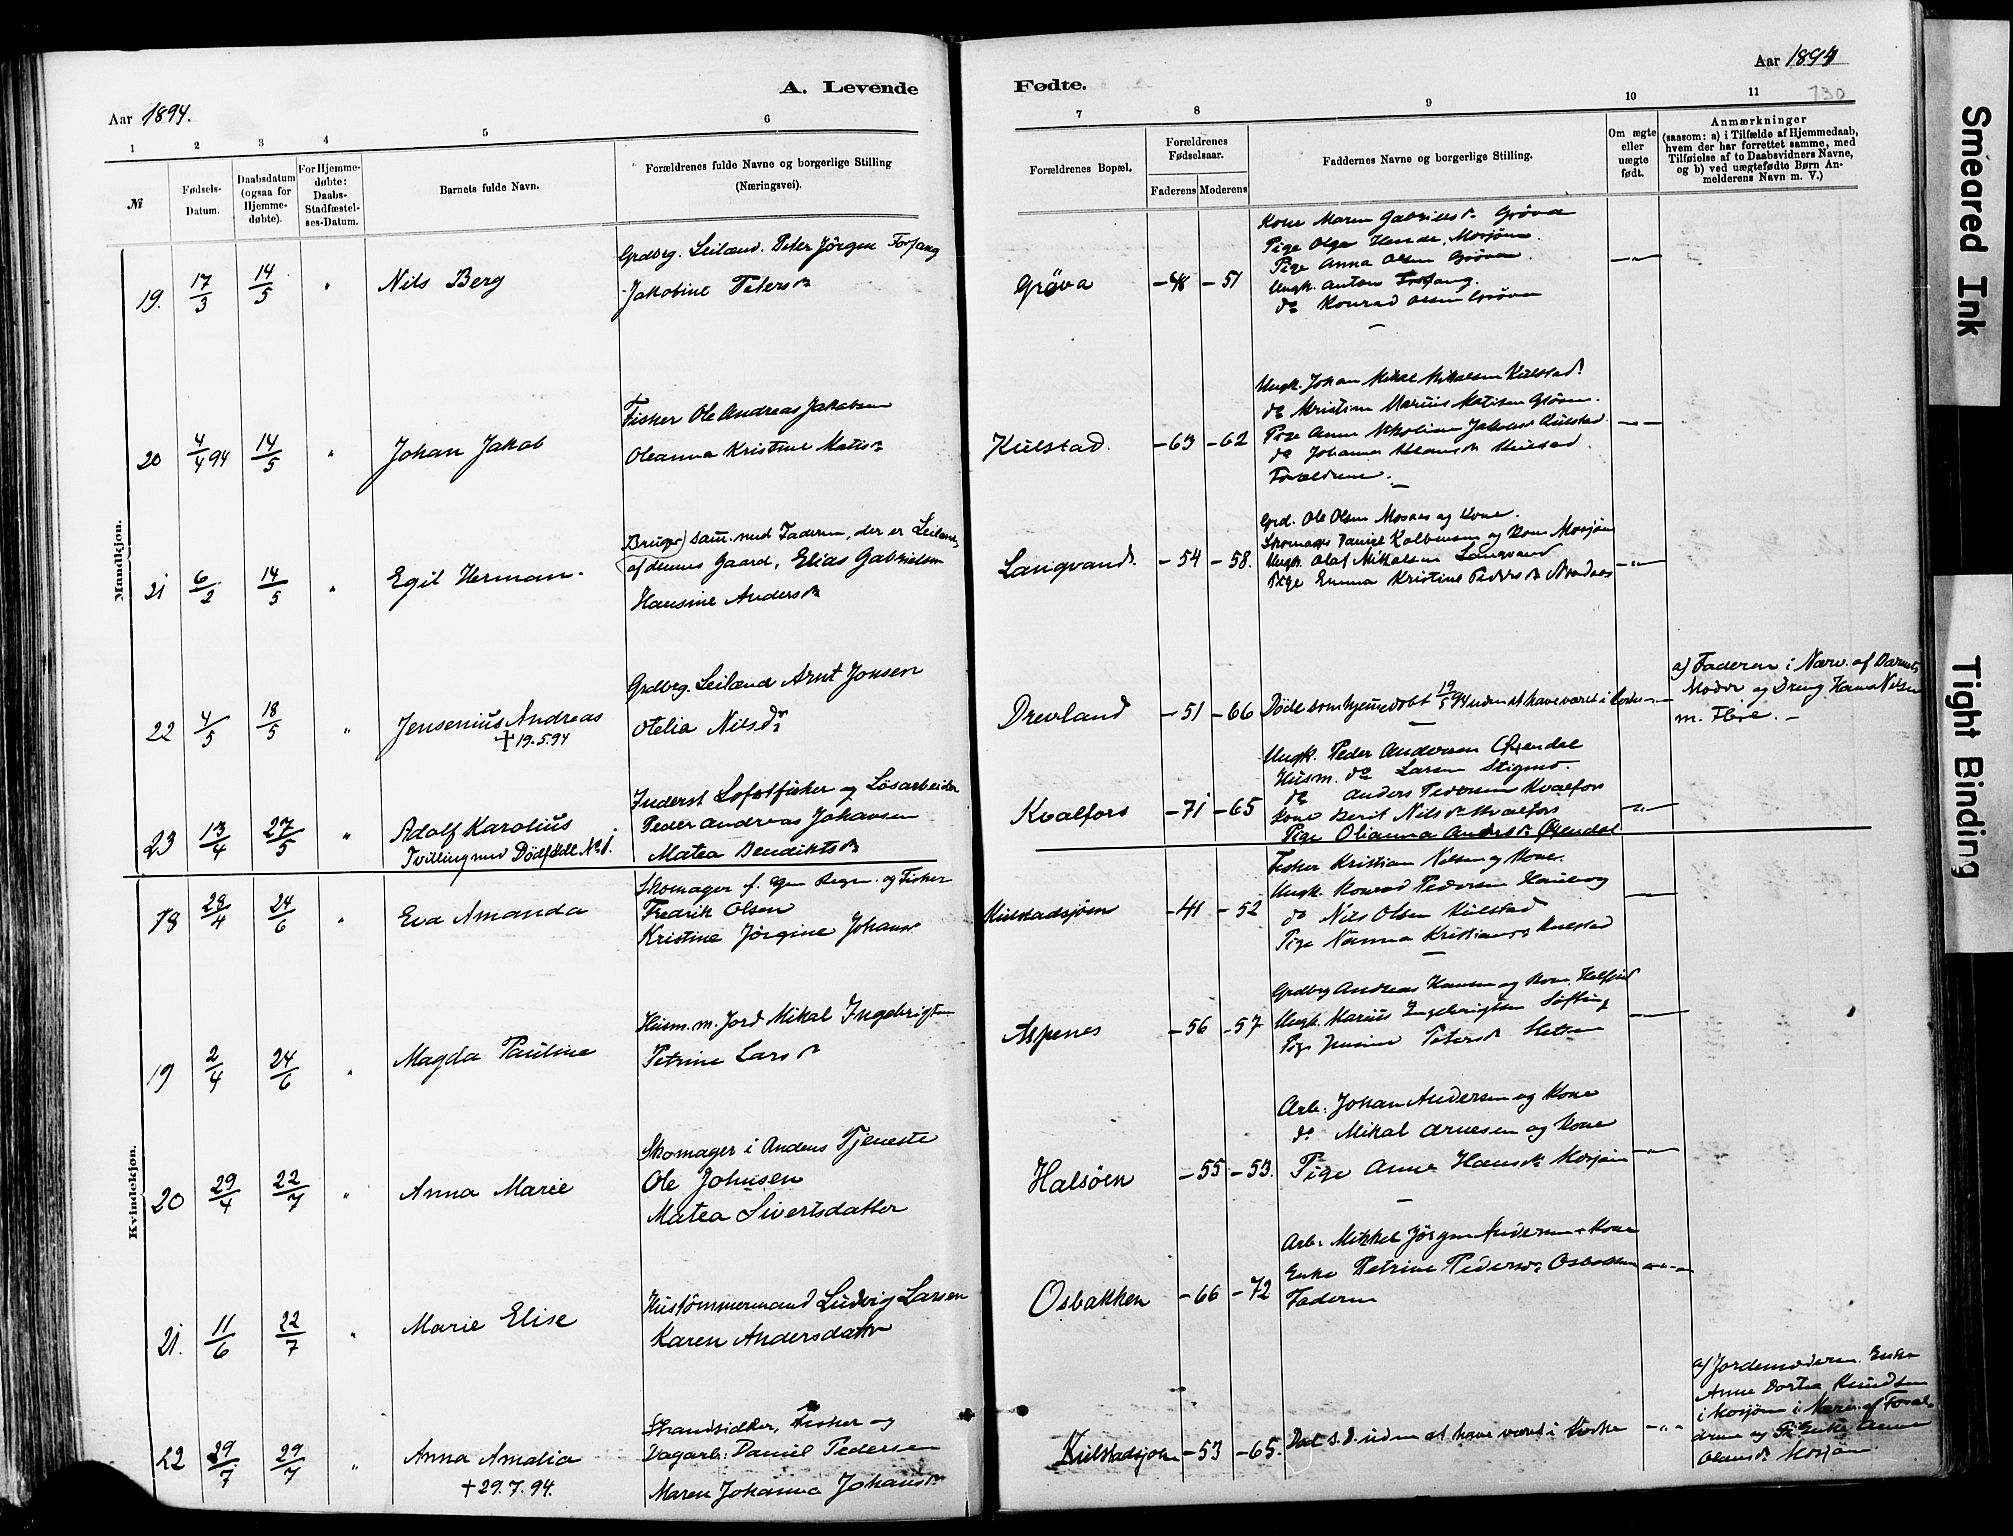 Aar 1894.
A. Levende
1 2 3 4 5 6
№
Fødsels-Datum.
Daabsdatum (ogsaa for Hjemme-døbte).
For Hjemme-døbte: Daabs-Stadfæstel-ses-Datum.
Barnets fulde Navn.
Forældrenes fulde Navne og borgerlige Stilling
(Næringsvei).
Mandkjøn.
19. 17/3 14/5 " Nils Berg
Grdbrg. Leilænd. Peter Jörgen Forfang
Jakobine Petersdr
20 4/4 94 14/5 " Johan Jakob
Fisker Ole Andreas Jakobsen
Oleanna Kristine Matisdr
21 6/2 14/5 " Egil Herman.
Bruger sam. med Faderen, der er Leilænd.
af dennes Gaard, Elias Gabrielsen
Hansine Andersdr
22 4/5 18/5 " Jensenius Andreas
† 19.5.94
Grdbrg. Leilænd Arnt Jonsen
Otelia Nilsdr
23 13/4 27/5 " Adolf Karolius
Tvilling med Dödfödt № 1.
Inderst Lofotfisker og Løsarbeider
Peder Andreas Johansen
Matea Bendiktsdr
Kvindekjøn.
18 29/4 24/6 " Eva Amanda
Skomager f. egen Regn. og Fisker
Fredrik Olsen
Kristine Jørgine Johansdr
19 2/4 24/6 " Magda Pauline
Husm. m. Jord Mikal Ingebrigtsen
Petrine Larsdr
20 29/4 22/7 " Anna Marie
Skomager i Andens Tjeneste
Ole Johnsen
Matea Sivertsdatter
21. 11/6 22/7 " Marie Elise
Hustømmermand Ludvig Larsen
Karen Andersdatter
22 29/7 29/7 " Anna Amalia
+ 29.7.94.
Strandsidder, Fisker og
Dagarb. Daniel Pedersen
Maren Johanna Johansdr
Fødte.
Aar 1894
130
7 8 9 10 11
Forældrenes Bopæl.
Forældrenes Fødselsaar.
Faderens Moderens
Faddernes Navne og borgerlige Stilling.
Om ægte eller uægte født.
Anmærkninger
(saasom: a) i Tilfælde af Hjemmedaab,
hvem der har forrettet samme, med
Tilføielse af to Daabsvidners Navne,
og b) ved uægtefødte Børn An-
melderens Navn m. V.)
Grøva -48 -51
Kone Maren Gabrielsdr Grøva
Pige Olga Hende, Mosjøen.
Pige Anna Olsen Grøva
Ungk. Anton Forfang.
do Konrad Olsen Grøva
Kulstad. -63 -62
Ungk. Johan Mikal Mikalsen Kulstad.
do Kristian Marius Matisen Grøva.
Pige Anne Nikoline Jakobsdr Kulstad
do Johanna Kulstad
Forældrene.
Langvand. -54 -58.
Grd. Ole Olsen Mosaas og Kone.
Skomager Daniel Kolbensen og Kone Mosjøen
Ungk. Olaf Mikkalsen Langvand
Pige Emma Kristine Pedersdr
Drevland -51 -66
Døde som hjemmedøbt 19/5 94 uden at have været i Kirke
a) Faderen i Nærv. af Barnets
Moder og Dreng Hans Nilsen
m. Flere.
Kvalfors -71 -65
Ungk. Peder Andersen Øxendal
Husm. do Larsen Stigmo.
do Anders Pedersen Kvalfors
Kone Berit Nilsdr Kvalfors
Pige Olianna Andersdr Øxendal
Kulstadsjøen -41 -52
Fisker Kristian Nilsen og Kone.
Ungk. Konrad Pedersen
do Nils Olsen Kulstad
Pige Nanna Kristiansdr Kulstad
Aspenes -56 -57
Grdbrg Andreas Hansen og Kone
Ungk. Marius Ingebrigtsen Søfting
Pige Petersdr
Halsöen -55 -53.
Arb. Johan Andersen og Kone
do Mikal Arnesen og Kone
Pige Anne Hansdr Mosjøen
Osbakken -66 -72
Arb. Mikkel Jørgen Andersen + Kone
Enke Petrine Pedersdr Osbakken
Faderen
Kulstadsjøen -53 -65.
Död s. D. uden at have været i Kirke
a) Jordemoderen Enke
Anne Dortea Knudsen
i Mosjøen i Nærv. af Foræl-
drene og Enke Anne
Olausdr Mosjøen
Smeared Ink
Tight Binding